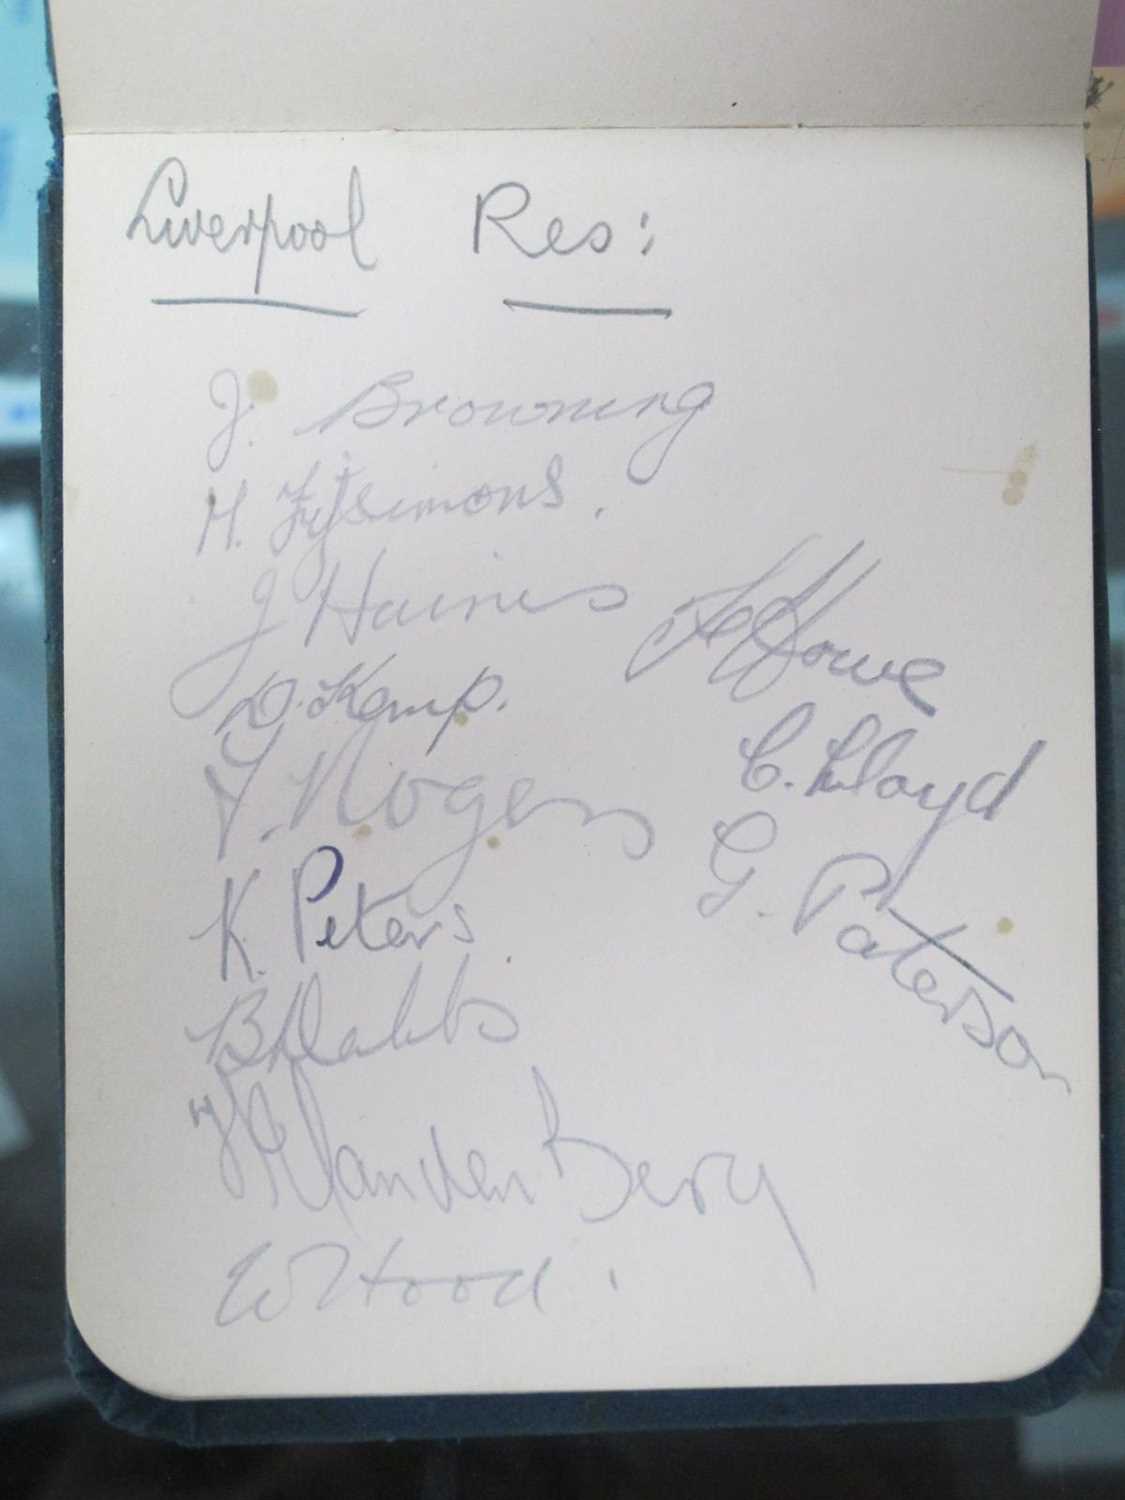 Liverpool Res:
J. Browning
H. Fitzsimons.
J Haines
D. Kemp.
F. Rogers
K. Peters
B Dabbs
H Van den Berg
W Hood.
F Howe
C. Lloyd
G. Paterson